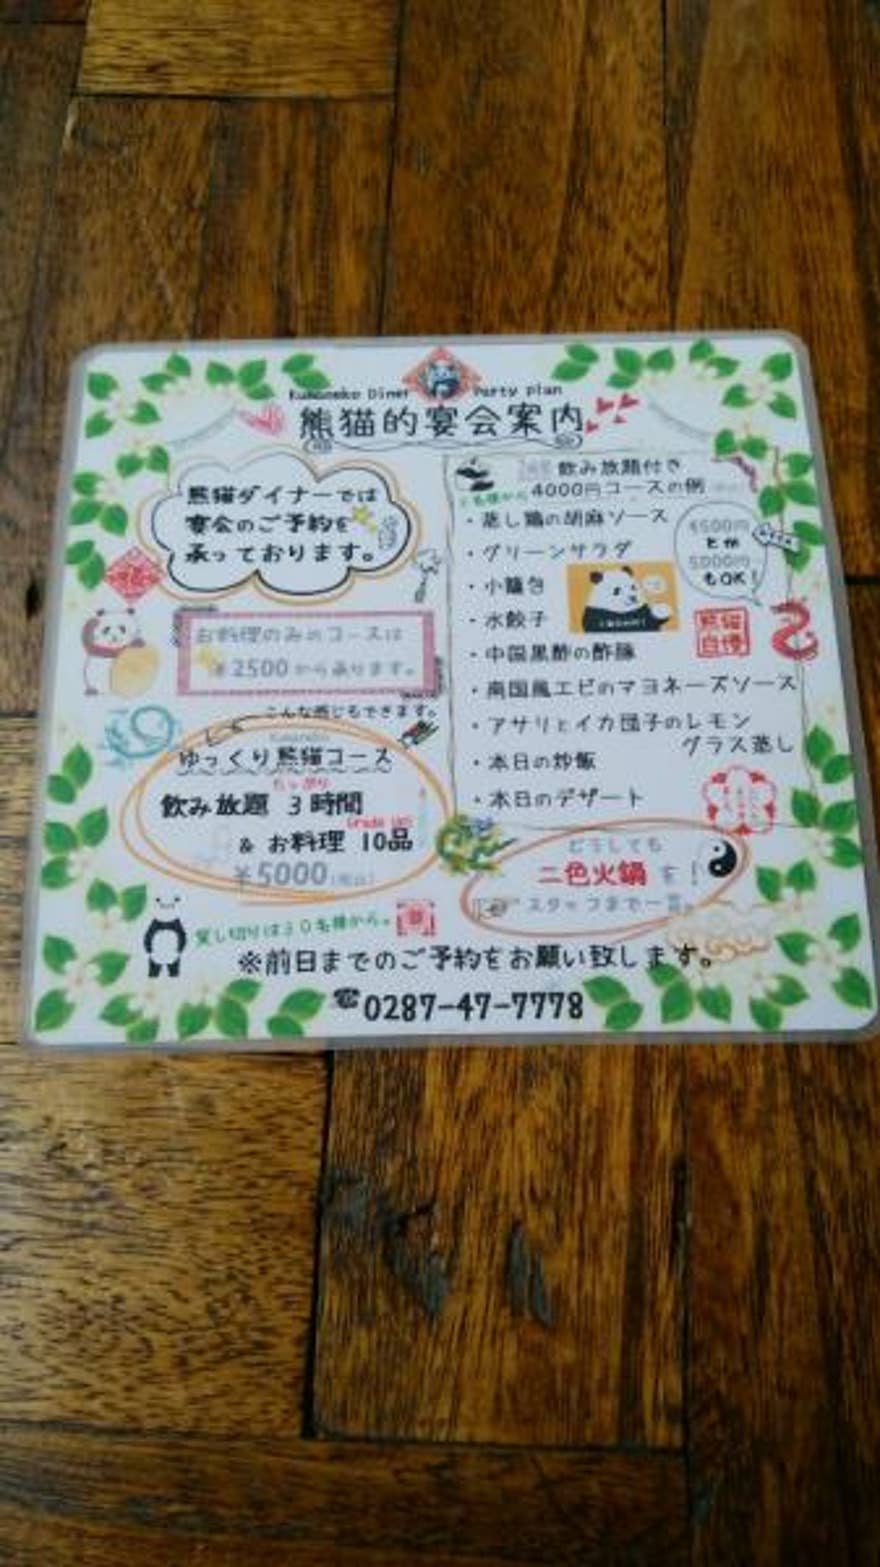 Kumaneko Diner Party plan
熊猫的宴会案内
熊猫ダイナーでは
宴会のご予約を
承っております。
お料理のみのコースは
¥2500から承ります。
こんな感じもできます。
ゆっくり熊猫コース
たっぷり
飲み放題 3時間
Grade up!
& お料理 10品
¥5000(税込)
貸し切りは30名様から。
飲み放題付き
4000円コースの例
・蒸し鶏の胡麻ソース
・グリーンサラダ
・小籠包
・水餃子
・中国黒酢の酢豚
・南国風エビのマヨネーズソース
・アサリとイカ団子のレモン
グラス蒸し
・本日の炒飯
・本日のデザート
4500円
とか
5000円
もOK!
熊猫
自慢
どうしても
二色火鍋を!
スタッフまで一言。
※前日までのご予約をお願い致します。
☎0287-47-7778